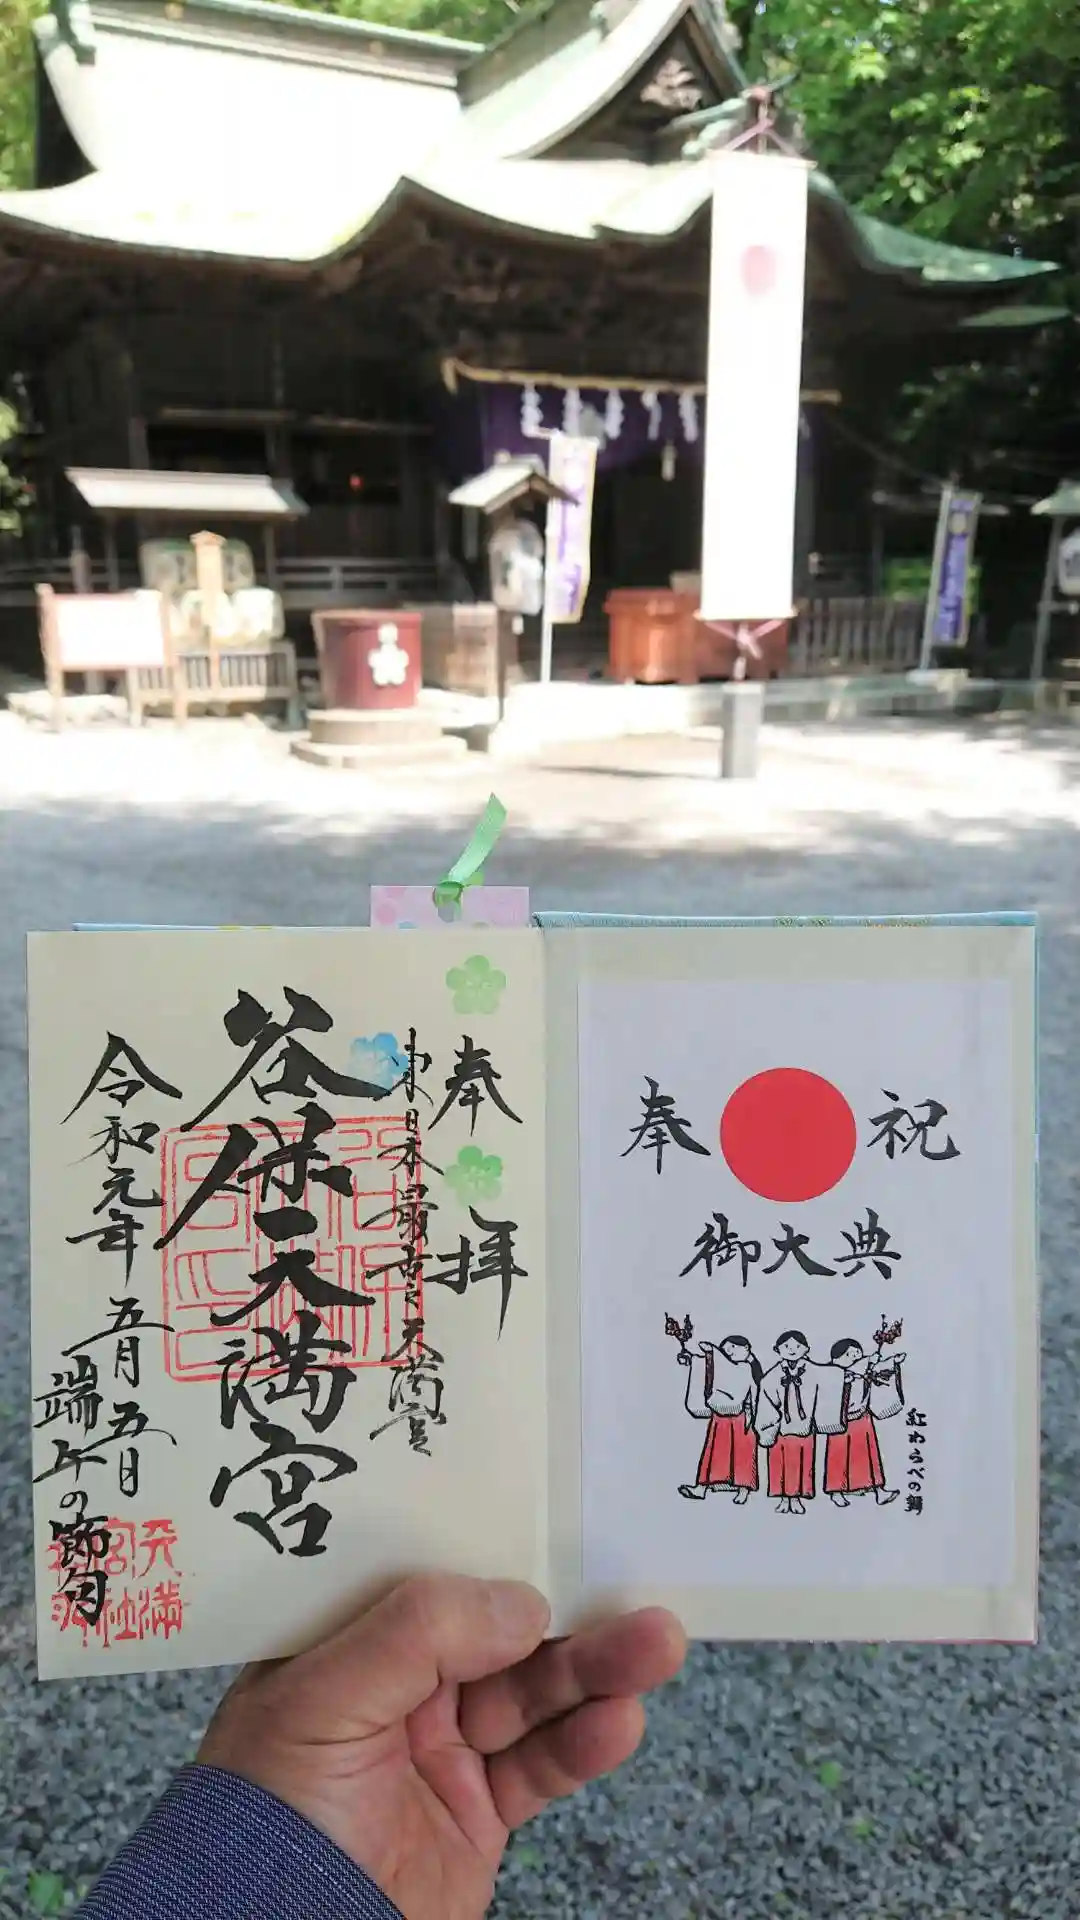 奉拝
東日本最古之天満宮
谷保天満宮
令和元年 五月五日
端午の節句
奉 祝
御大典
紅わらべの舞